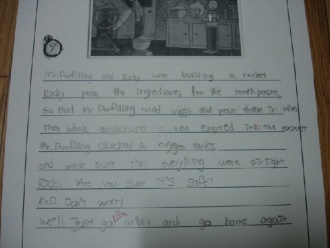 Mr. Dunfilling and Ricky were building a rocket
Ricky pass the ingredients for the toothpaste,
So that Mr. Dunfilling could and pour them in
That whole was emptied into the rocket
Mr. Dunfilling checked a oxygen tanks
and make sure that everything were airtight
Ricky: Are you sure it's safe?
Mr.D: Don't worry.
We'll just go orbit and go home again